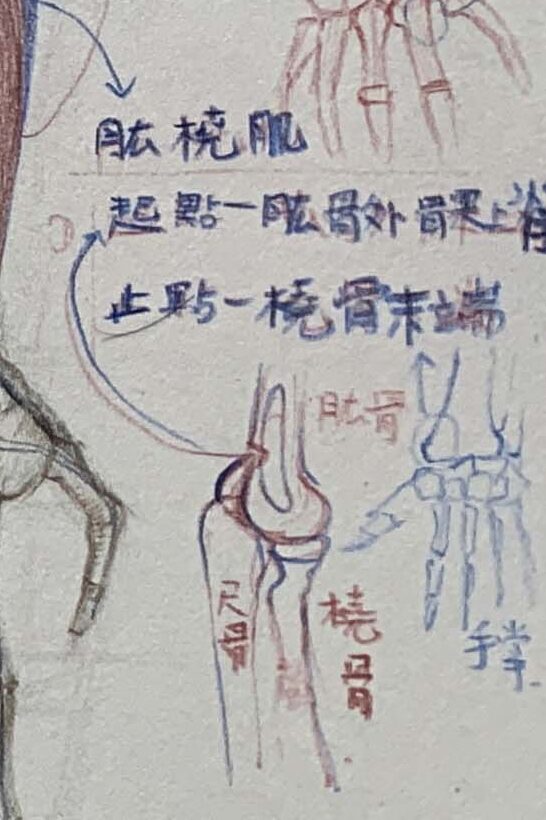 肱橈肌
起點一肱骨外骨果上脊
止點一橈骨末端
肱骨
尺骨
橈骨
手掌